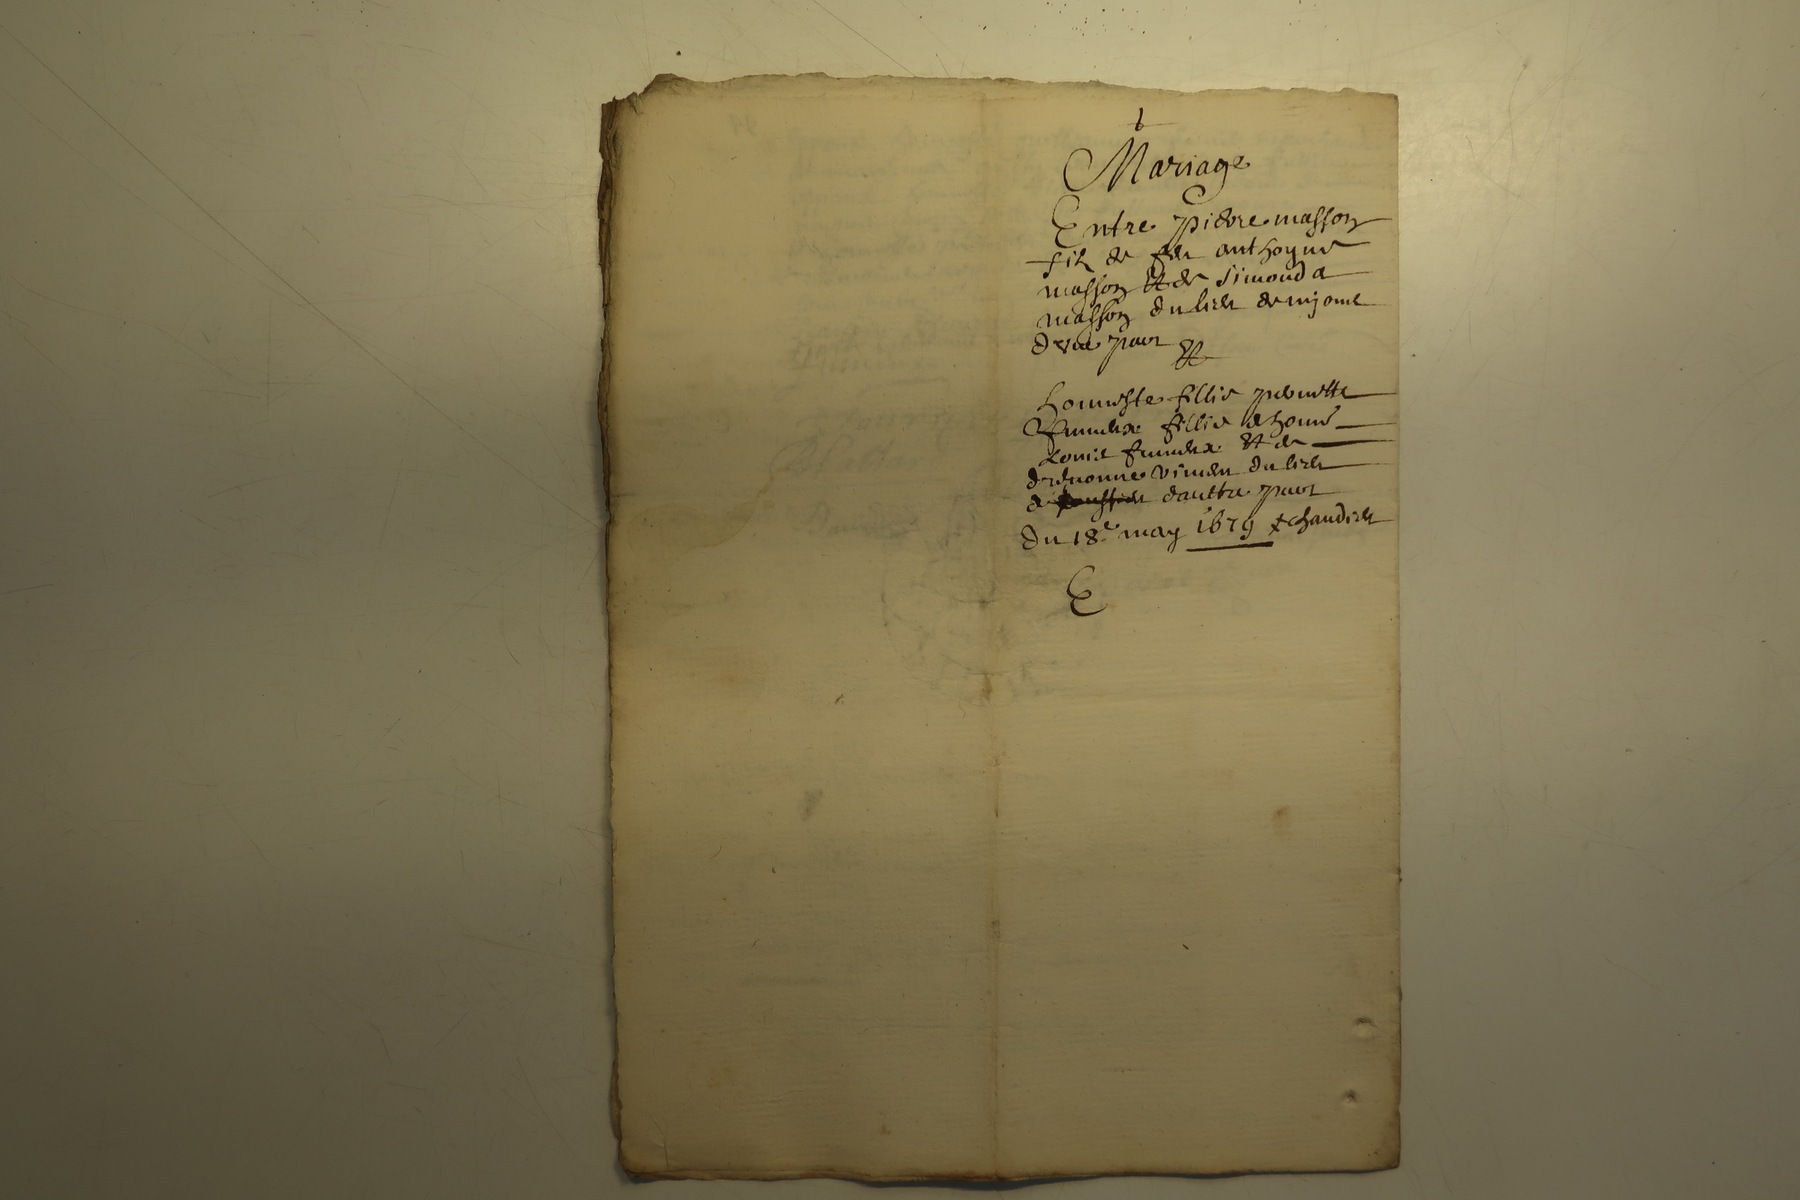 Mariage
Entre pierre masson
filz de feu anthoyne
masson et de simonda
masson du lieu de mjome
dvne part et
honneste fillie pernette
fillie de hon.e
Louis et de
du lieu
de daultre part
du 18.e may 1679 +chandieu
E